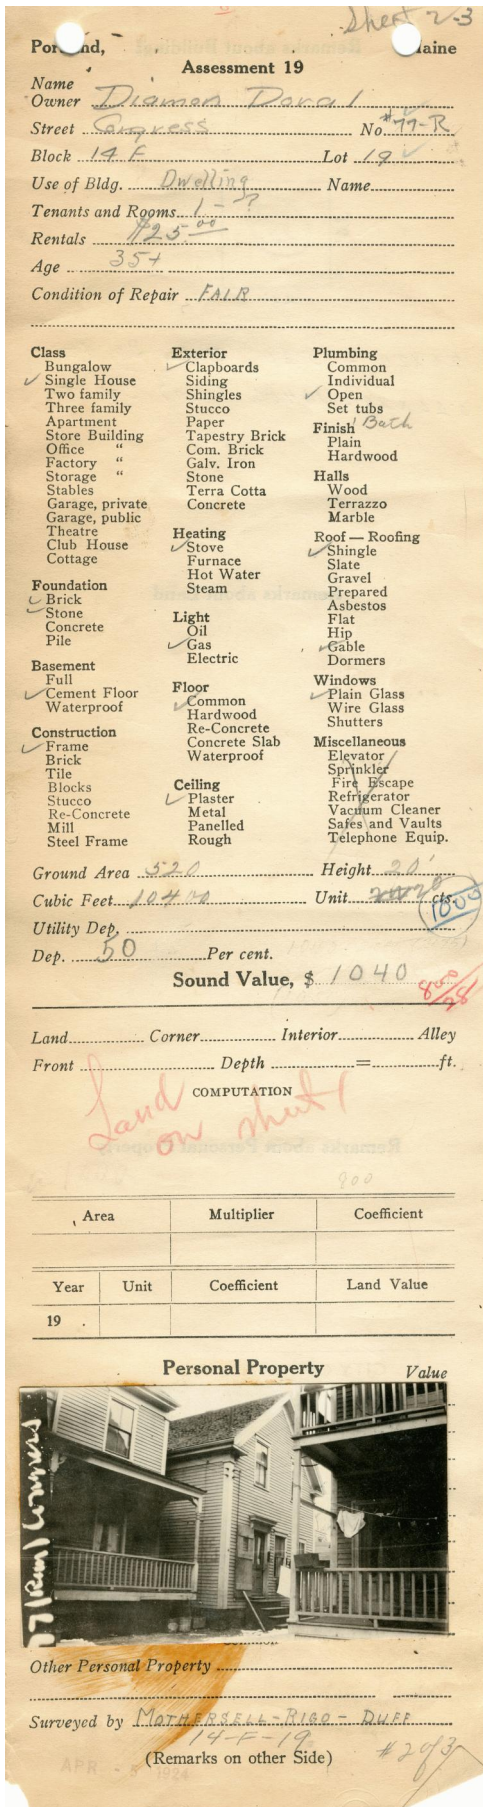 Sheet 2-3
Portland, Maine
Assessment 19
Name
Owner Diamon Doral
Street Congress No. #77-R
Block 14 F Lot 19 ✓
Use of Bldg. Dwelling Name
Tenants and Rooms 1 - ?
Rentals $25.00
Age 35+
Condition of Repair FAIR
Class
Bungalow
✓ Single House
Two family
Three family
Apartment
Store Building
Office "
Factory "
Storage "
Stables
Garage, private
Garage, public
Theatre
Club House
Cottage
Foundation
✓ Brick
✓ Stone
Concrete
Pile
Basement
Full
✓ Cement Floor
Waterproof
Construction
✓ Frame
Brick
Tile
Blocks
Stucco
Re-Concrete
Mill
Steel Frame
Exterior
✓ Clapboards
Siding
Shingles
Stucco
Paper
Tapestry Brick
Com. Brick
Galv. Iron
Stone
Terra Cotta
Concrete
Heating
✓ Stove
Furnace
Hot Water
Steam
Light
Oil
✓ Gas
Electric
Floor
✓ Common
Hardwood
Re-Concrete
Concrete Slab
Waterproof
Ceiling
✓ Plaster
Metal
Panelled
Rough
Plumbing
Common
Individual
✓ Open
Set tubs
Bath
Finish
Plain
Hardwood
Halls
Wood
Terrazzo
Marble
Roof—Roofing
✓ Shingle
Slate
Gravel
Prepared
Asbestos
Flat
Hip
✓ Gable
Dormers
Windows
✓ Plain Glass
Wire Glass
Shutters
Miscellaneous
Elevator
Sprinkler
Fire Escape
Refrigerator
Vacuum Cleaner
Safes and Vaults
Telephone Equip.
Ground Area 520 Height 20'
Cubic Feet 10400 Unit 20 cts.
1000
Utility Dep.
Dep. 50 Per cent.
Sound Value, $ 1040
800/28
Land Corner Interior Alley
Front Depth = ft.
COMPUTATION
Land on sheet 1
900
Area Multiplier Coefficient
Year Unit Coefficient Land Value
19
Personal Property Value
77 (Rear) Congress
Other Personal Property
Surveyed by MOTHERSELL-RIGO-DUFF
14-F-19
(Remarks on other Side)
#2 of 3
APR - 5 1924